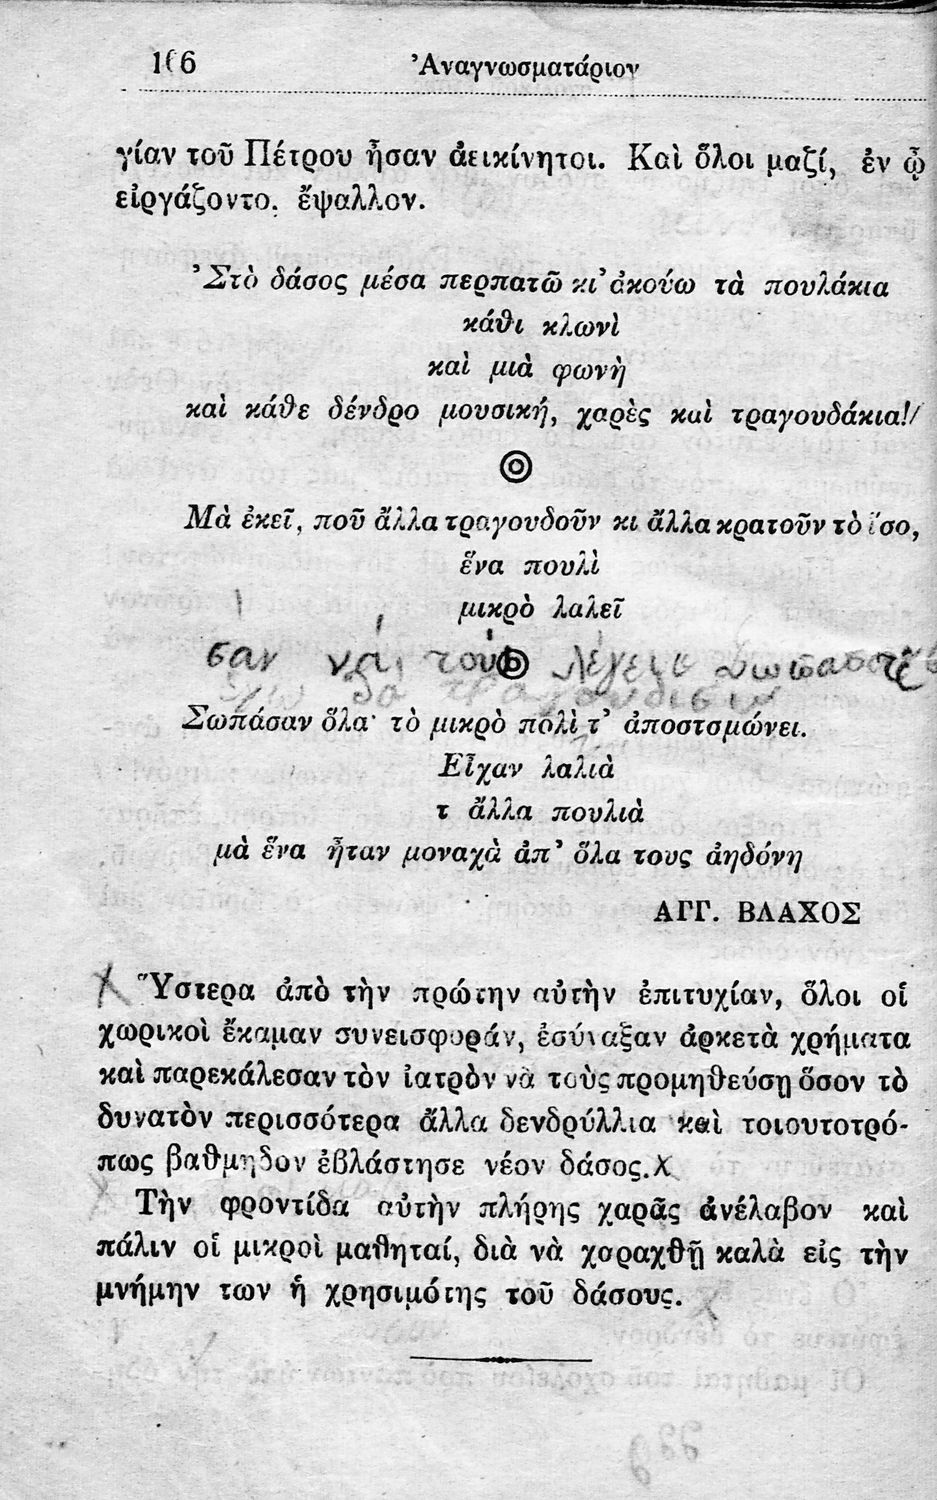 106 Ἀναγνωσματάριον
γίαν τοῦ Πέτρου ἦσαν ἀεικίνητοι. Καὶ ὅλοι μαζί, ἐν ᾧ
εἰργάζοντο, ἔψαλλον.
Ἀ Στὸ δάσος μέσα περπατῶ κι’ ἀκούω τὰ πουλάκια
κάθι κλωνὶ
καὶ μιὰ φωνὴ
καὶ κάθε δένδρο μουσική, χαρὲς καὶ τραγουδάκια!
Μὰ ἐκεῖ, ποῦ ἄλλα τραγουδοῦν κι ἄλλα κρατοῦν τὸ ἴσο,
ἕνα πουλὶ
μικρὸ λαλεῖ
σαν νά τους λέγει σωπάστε
ἐγὼ θα τραγουδίσω
Σωπάσαν ὅλα· τὸ μικρὸ πολὶ τ’ ἀποστσμώνει.
Εἶχαν λαλιὰ
τ ἄλλα πουλιὰ
μὰ ἕνα ἦταν μοναχὰ ἀπ’ ὅλα τους ἀηδόνη
ΑΓΓ. ΒΛΑΧΟΣ
Ὕστερα ἀπὸ τὴν πρώτην αὐτὴν ἐπιτυχίαν, ὅλοι οἱ
χωρικοὶ ἔκαμαν συνεισφοράν, ἐσύναξαν ἀρκετὰ χρήματα
καὶ παρεκάλεσαν τὸν ἰατρὸν νὰ τοὺς προμηθεύσῃ ὅσον τὸ
δυνατὸν περισσότερα ἄλλα δενδρύλλια καὶ τοιουτοτρό-
πως βαθμηδον ἐβλάστησε νέον δάσος.
Τὴν φροντίδα αὐτὴν πλήρης χαρᾶς ἀνέλαβον καὶ
πάλιν οἱ μικροὶ μαθηταί, διὰ νὰ χαραχθῇ καλὰ εἰς τὴν
μνήμην των ἡ χρησιμότης τοῦ δάσους.